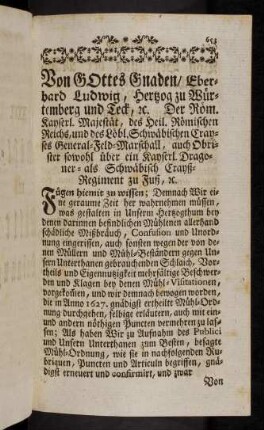 Von GOttes Gnaden / Eber-
hard Ludwig, Hertzog zu Wür-
temberg und Teck, ꝛc. Der Röm.
Kayserl. Majestät, des Heil. Römischen
Reichs, und des Löbl. Schwäbischen Cray-
ses General-Feld-Marschall, auch Obri-
ster sowohl über ein Kayserl. Drago-
ner- als Schwäbisch Crayß-
Regiment zu Fuß, ꝛc.
Fügen hiemit zu wissen; Demnach Wir ei-
ne geraume Zeit her wahrnehmen müssen,
was gestalten in Unserm Hertzogthum bey
denen darinnen befindlichen Mühlenen allerhand
schädliche Mißbräuch, Confusion und Unord-
nung eingerissen, auch sonsten wegen der von de-
nen Müllern und Mühl-Beständern gegen Un-
sern Unterthanen gebrauchenden Schlaich, Vor-
theils und Eigennutzigkeit mehrfältige Beschwer-
den und Klagen bey denen Mühl-Visitationen,
vorgekommen, und wir demnach bewogen worden,
die in Anno 1627. gnädigst ertheilte Mühl-Ord-
nung durchgehen, selbige erläutern, auch mit ein
und andern nöthigen Puncten vermehren zu las-
sen; Als haben Wir zu Aufnahm des Publici
und Unsern Unterthanen zum Besten, besagte
Mühl-Ordnung, wie sie in nachfolgenden Ru-
briquen, Puncten und Articuln begriffen, gnä-
digst erneuert und confirmirt, und zwar
Von